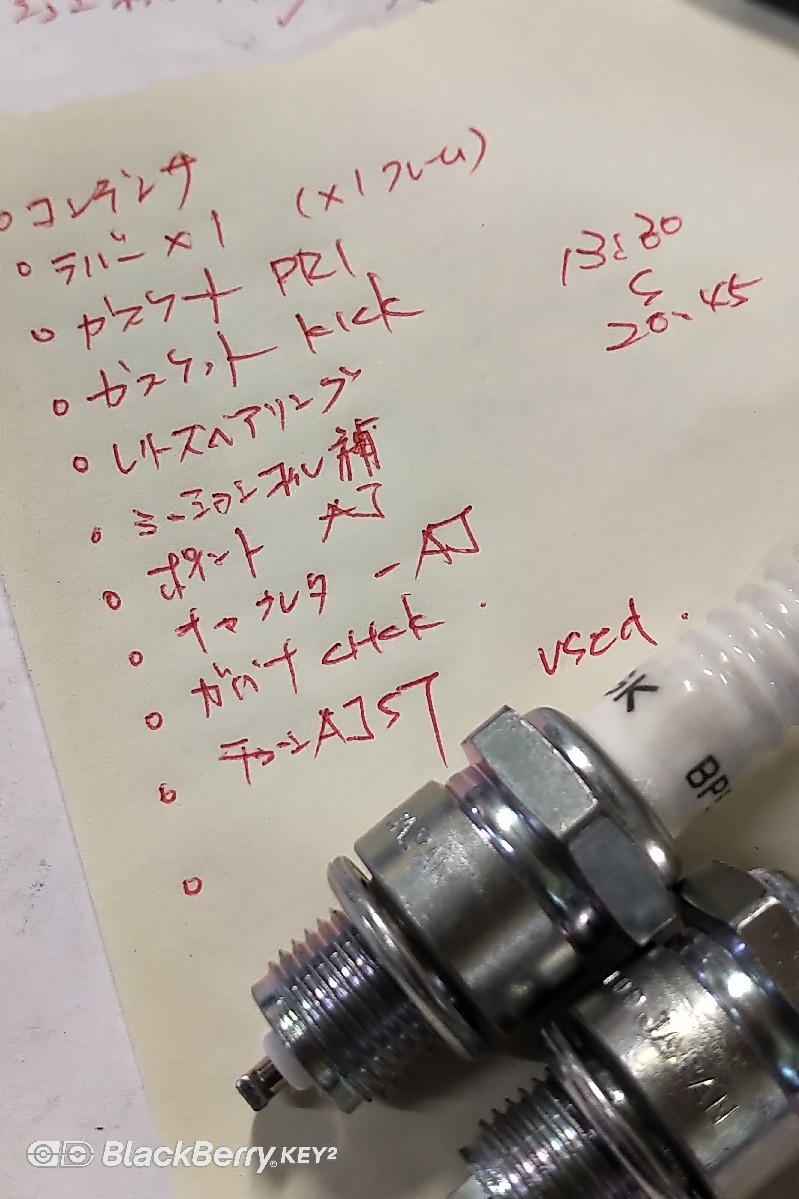 コンデンサ
ラバー×1 (×1フレーム)
ガスケット PRI
ガスケット kick
レリーズベアリング
ミッションオイル補
ポイント AJ
キャブレタ - AJ
ガバナ CHCK.
チェーンAJST
13:30
20:45
used.
GK
BP
JAPAN
BlackBerry KEY2